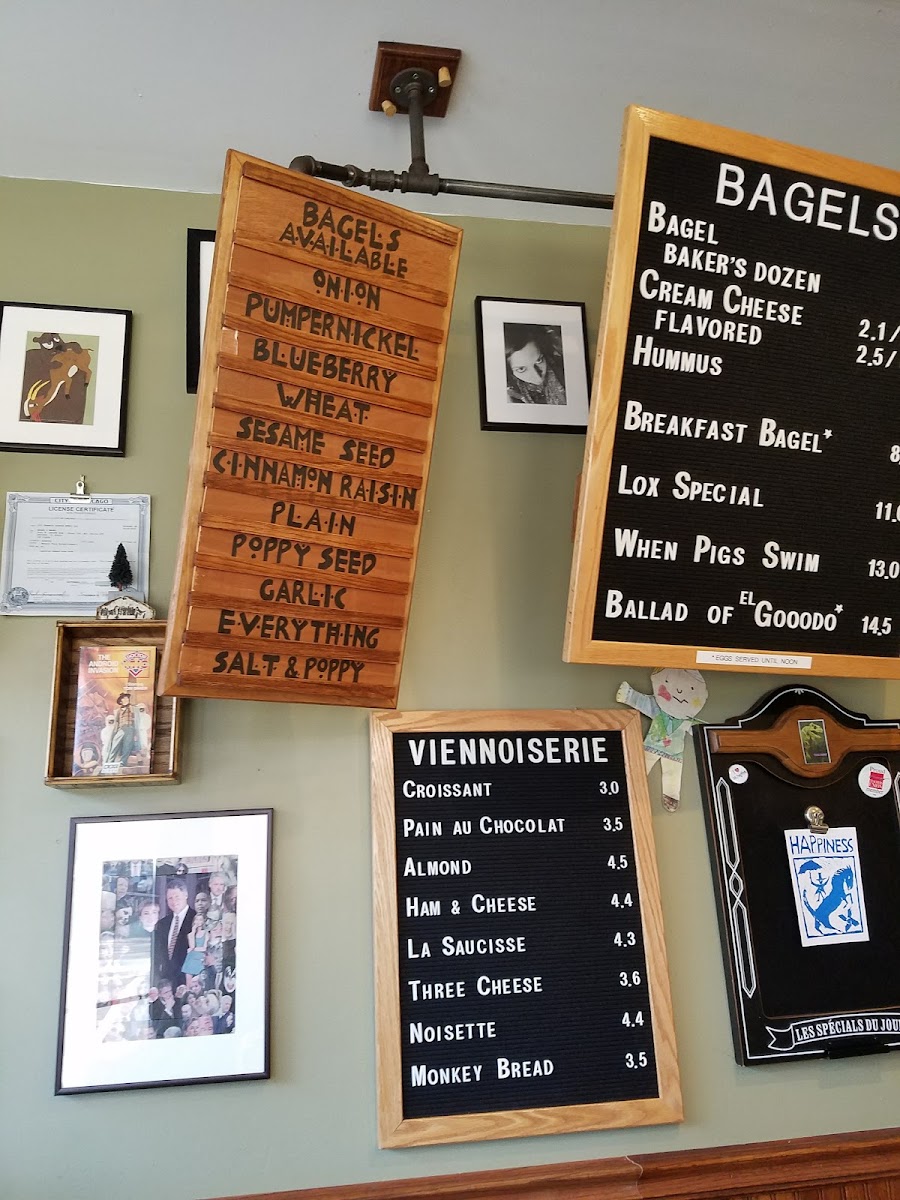 BAGELS
AVAILABLE
ONION
PUMPERNICKEL
BLUEBERRY
WHEAT
SESAME SEED
CINNAMON RAISIN
PLAIN
POPPY SEED
GARLIC
EVERYTHING
SALT & POPPY
BAGELS
BAGEL
BAKER'S DOZEN
CREAM CHEESE 2.1/
FLAVORED 2.5/
HUMMUS
BREAKFAST BAGEL* 8
LOX SPECIAL 11.0
WHEN PIGS SWIM 13.0
BALLAD OF EL GOOODO* 14.5
*EGGS SERVED UNTIL NOON
LICENSE CERTIFICATE
THE
ANDROID
INVASION
DOCTOR
WHO
VIENNOISERIE
CROISSANT 3.0
PAIN AU CHOCOLAT 3.5
ALMOND 4.5
HAM & CHEESE 4.4
LA SAUCISSE 4.3
THREE CHEESE 3.6
NOISETTE 4.4
MONKEY BREAD 3.5
HAPPINESS
LES SPÉCIALS DU JOU